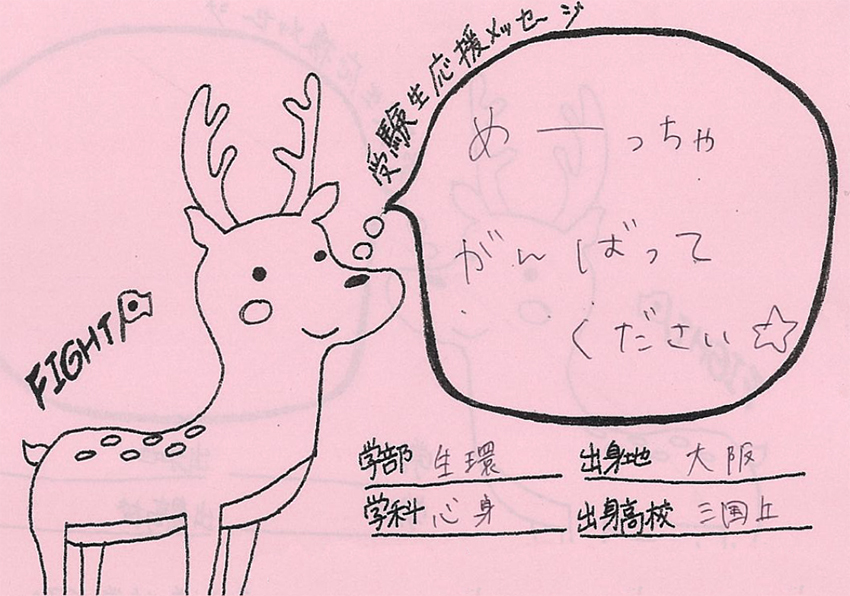 受験生応援メッセージ
めーっちゃ
がんばって
ください☆
FIGHT
学部 生環 出身地 大阪
学科 心身 出身高校 三国丘